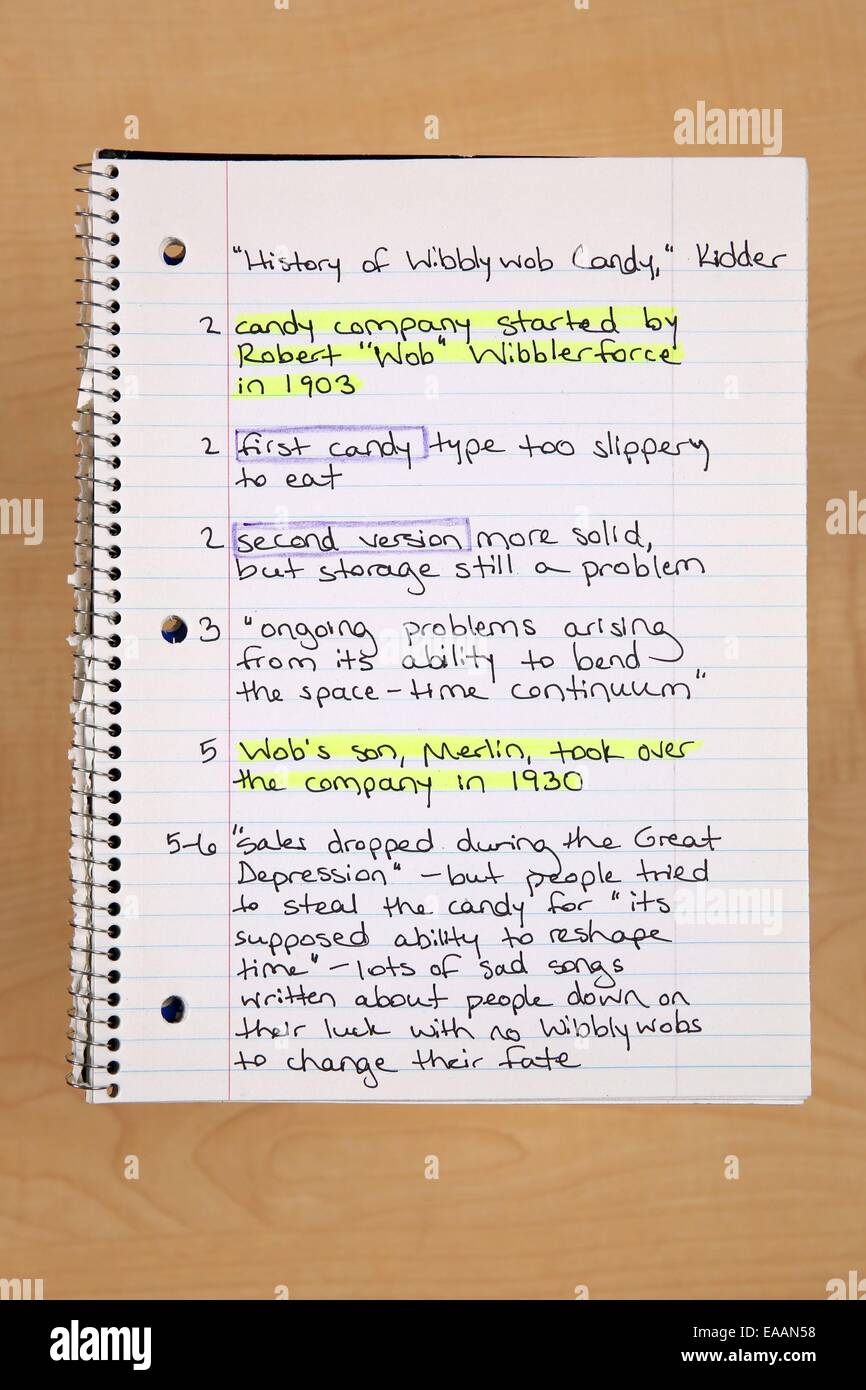 "History of Wibblywob Candy," Kidder
2 candy company started by
Robert "Wob" Wibblerforce
in 1903
2 first candy type too slippery
to eat
2 second version more solid,
but storage still a problem
3 "ongoing problems arising
from its ability to bend
the space-time continuum"
5 Wob's son, Merlin, took over
the company in 1930
5-6 "Sales dropped during the Great
Depression" - but people tried
to steal the candy for "its
supposed ability to reshape
time" - lots of sad songs
written about people down on
their luck with no Wibblywobs
to change their fate
alamy
a
a
a
a
alamy
alamy
a
a
a
alamy
alamy
alamy stock photo
EAAN58
www.alamy.com